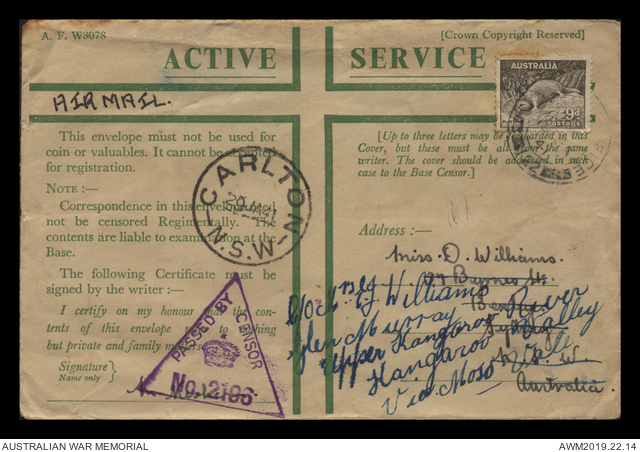 A. F. W3078
[Crown Copyright Reserved]
ACTIVE SERVICE
AIR MAIL.
AUSTRALIA
9d
POSTAGE
This envelope must not be used for
coin or valuables. It cannot be accepted
for registration.
NOTE :—
Correspondence in this envelope need
not be censored Regimentally. The
contents are liable to examination at the
Base.
The following Certificate must be
signed by the writer :—
I certify on my honour that the con-
tents of this envelope refer to nothing
but private and family matters.
Signature
Name only
CARLTON
N.S.W
PASSED BY CENSOR
No. 2196
[Up to three letters may be forwarded in this
Cover, but these must be all from the same
writer. The cover should be addressed in such
case to the Base Censor.]
Address :—
Miss. D. Williams.
Baynes St.
Sydney
N. S. W
Australia.
Williams
Glen Murray
Upper Kangaroo River
Kangaroo Valley
Via Moss Vale
AUSTRALIAN WAR MEMORIAL
AWM2019.22.14